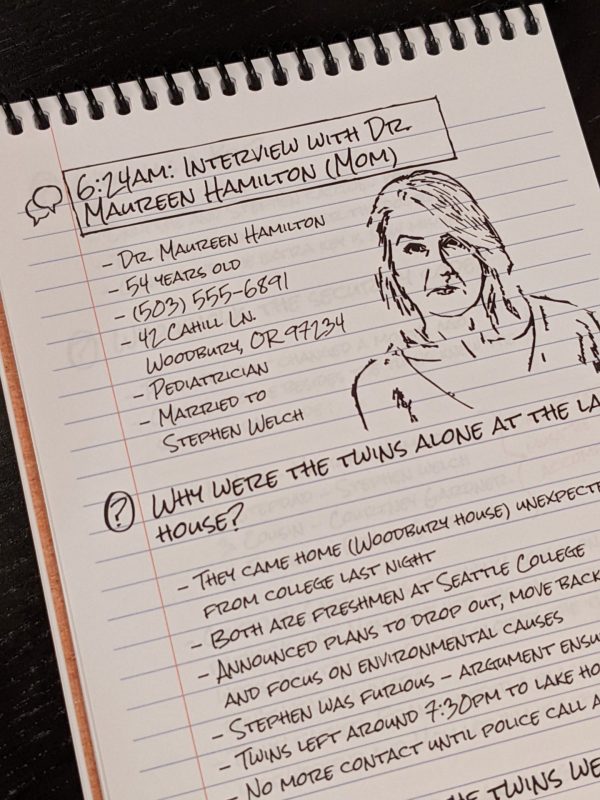 6:24AM: INTERVIEW WITH DR.
MAUREEN HAMILTON (MOM)
- DR. MAUREEN HAMILTON
- 54 YEARS OLD
- (503) 555-6891
- 42 CAHILL LN.
WOODBURY, OR 97234
- PEDIATRICIAN
- MARRIED TO
STEPHEN WELCH
? WHY WERE THE TWINS ALONE AT THE LA
HOUSE?
- THEY CAME HOME (WOODBURY HOUSE) UNEXPECTE
FROM COLLEGE LAST NIGHT
- BOTH ARE FRESHMEN AT SEATTLE COLLEGE
- ANNOUNCED PLANS TO DROP OUT, MOVE BACK
AND FOCUS ON ENVIRONMENTAL CAUSES
- STEPHEN WAS FURIOUS - ARGUMENT ENSU
- TWINS LEFT AROUND 7:30PM TO LAKE HO
- NO MORE CONTACT UNTIL POLICE CALL A
THE TWINS WE